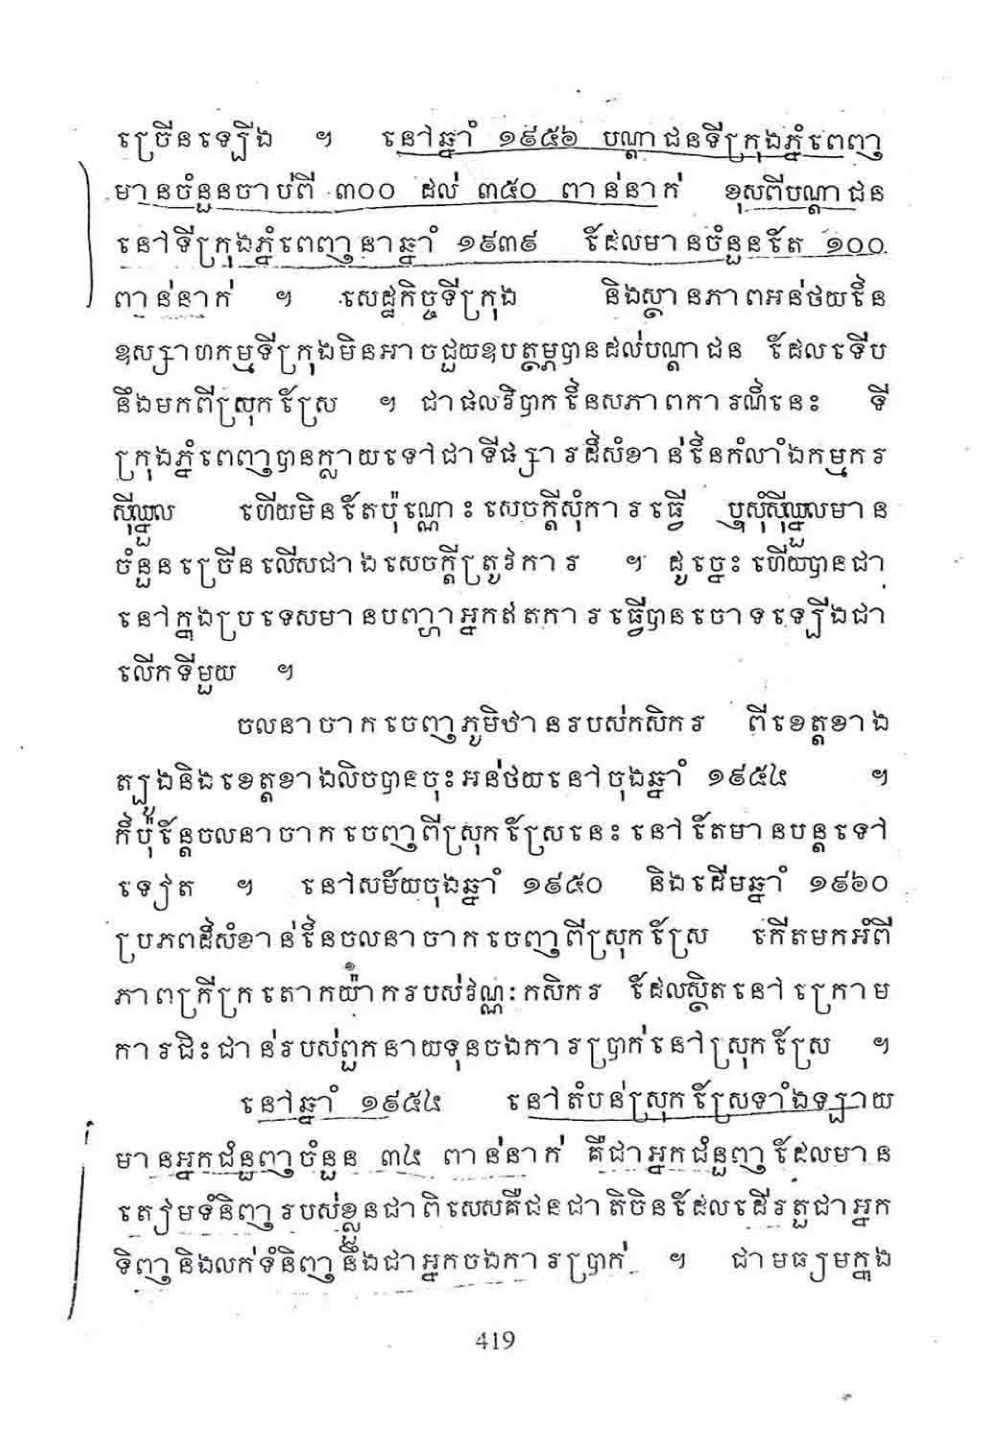 ច្រើនឡើង ។ នៅឆ្នាំ ១៩៥៦ បណ្តាជនទីក្រុងភ្នំពេញ
មានចំនួនចាប់ពី ៣០០ ដល់ ៣៥០ ពាន់នាក់ ខុសពីបណ្តាជន
នៅទីក្រុងភ្នំពេញនាឆ្នាំ ១៩៣៩ ដែលមានចំនួនតែ ១០០
ពាន់នាក់ ។ សេដ្ឋកិច្ចទីក្រុង និងស្ថានភាពអន់ថយនៃ
ឧស្សាហកម្មទីក្រុងមិនអាចជួយឧបត្ថម្ភបានដល់បណ្តាជន ដែលទើប
នឹងមកពីស្រុកស្រែ ។ ជាផលវិបាកនៃសភាពការណ៍នេះ ទី
ក្រុងភ្នំពេញបានក្លាយទៅជាទីផ្សារដ៏សំខាន់នៃកំលាំងកម្មករ
ស៊ីឈ្នួល ហើយមិនតែប៉ុណ្ណោះសេចក្តីសុំការធ្វើ ឬសុំស៊ីឈ្នួលមាន
ចំនួនច្រើនលើសជាងសេចក្តីត្រូវការ ។ ដូច្នេះហើយបានជា
នៅក្នុងប្រទេសមានបញ្ហាអ្នកឥតការធ្វើបានចោទឡើងជា
លើកទីមួយ ។
ចលនាចាកចេញភូមិឋានរបស់កសិករ ពីខេត្តខាង
ត្បូងនិងខេត្តខាងលិចបានចុះអន់ថយនៅចុងឆ្នាំ ១៩៥៤ ។
ក៏ប៉ុន្តែចលនាចាកចេញពីស្រុកស្រែនេះនៅតែមានបន្តទៅ
ទៀត ។ នៅសម័យចុងឆ្នាំ ១៩៥០ និងដើមឆ្នាំ ១៩៦០
ប្រភពដ៏សំខាន់នៃចលនាចាកចេញពីស្រុកស្រែ កើតមកអំពី
ភាពក្រីក្រតោកយ៉ាករបស់វណ្ណៈកសិករ ដែលស្ថិតនៅក្រោម
ការជិះជាន់របស់ពួកនាយទុនចងការប្រាក់នៅស្រុកស្រែ ។
នៅឆ្នាំ ១៩៥៤ នៅតំបន់ស្រុកស្រែទាំងឡាយ
មានអ្នកជំនួញចំនួន ៣៤ ពាន់នាក់ គឺជាអ្នកជំនួញដែលមាន
តៀមទំនិញរបស់ខ្លួនជាពិសេសគឺជនជាតិចិនដែលដើរតួជាអ្នក
ទិញនិងលក់ទំនិញនឹងជាអ្នកចងការប្រាក់ ។ ជាមធ្យមក្នុង
419